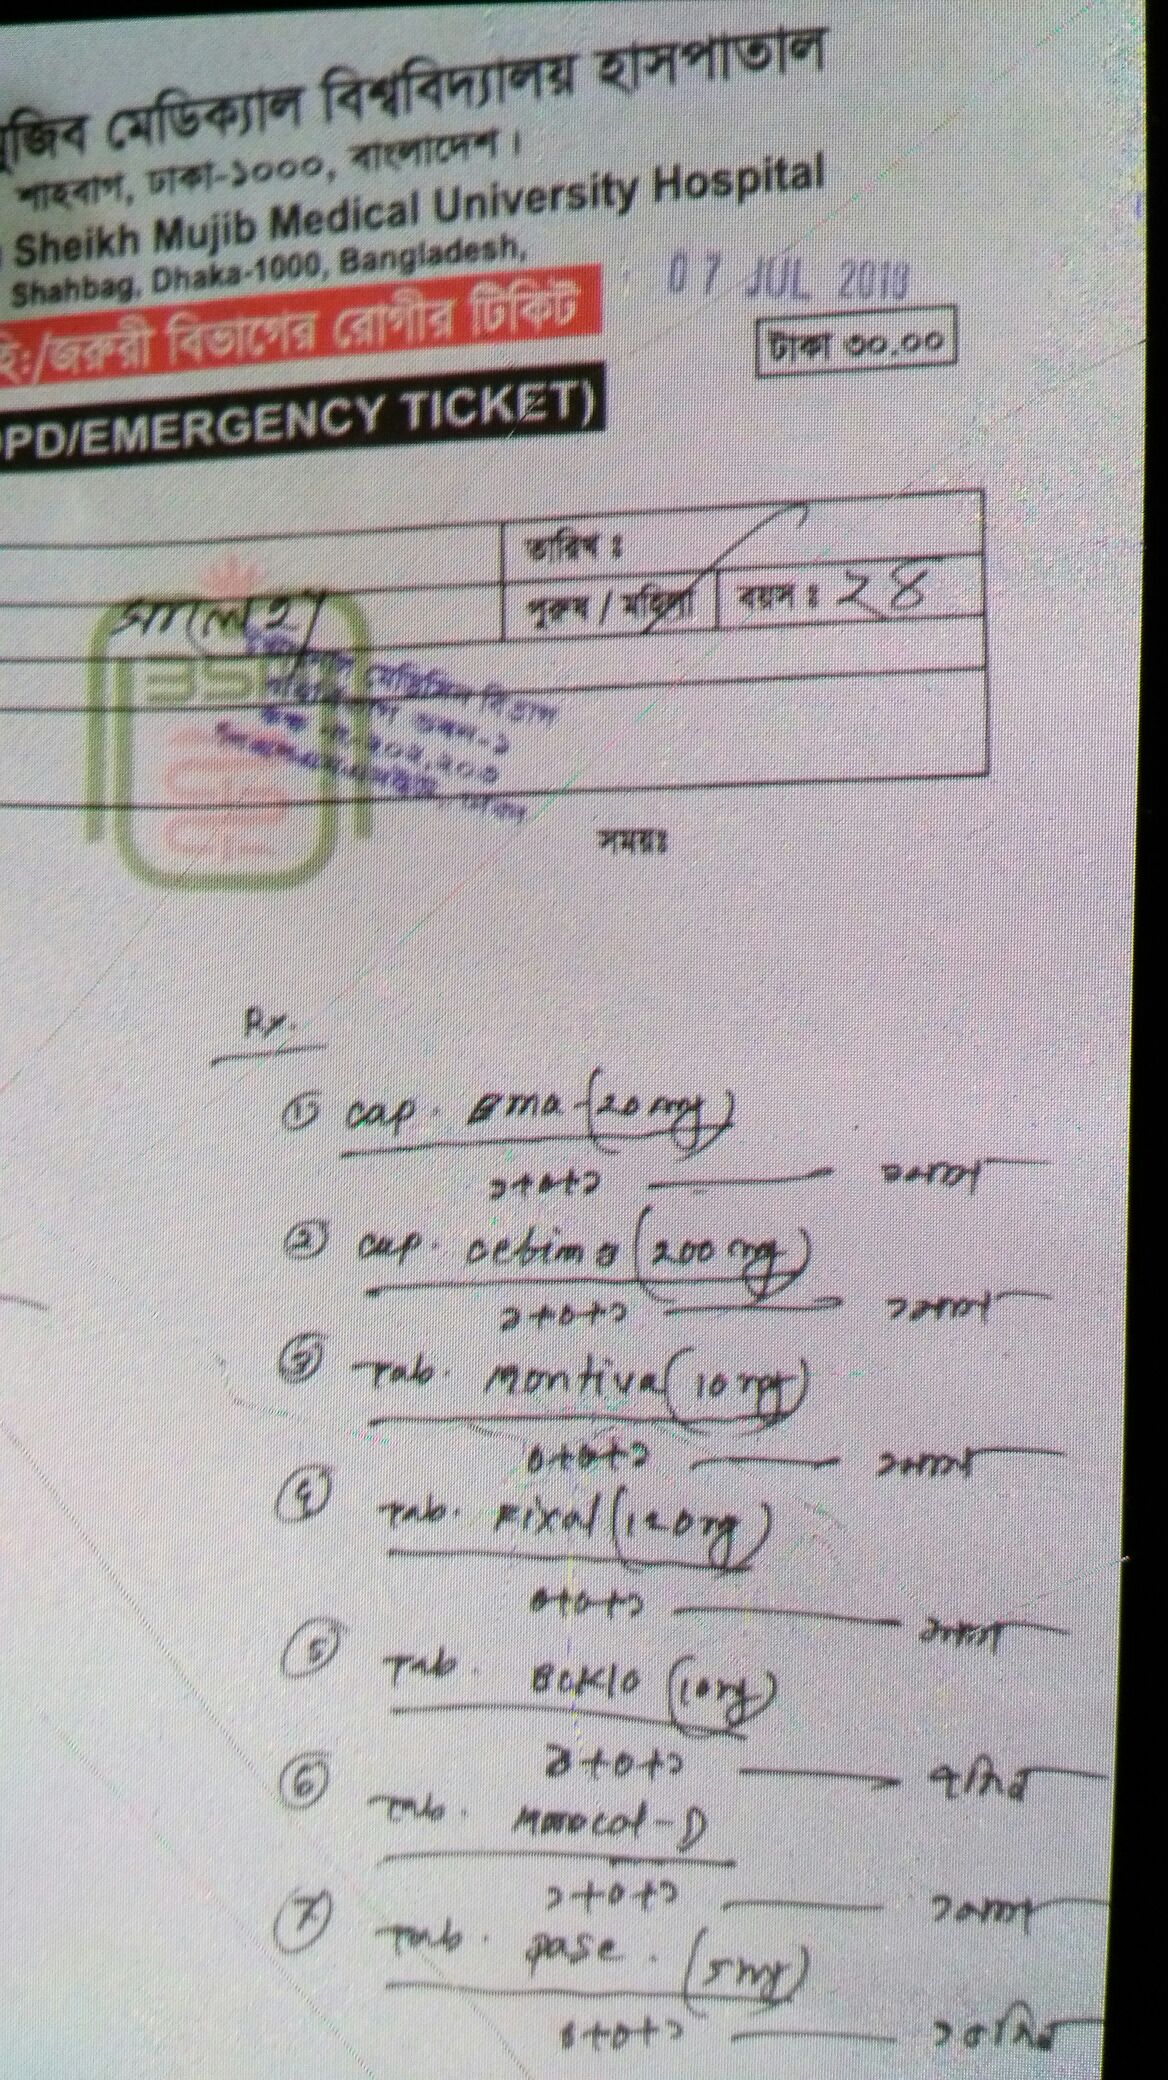 মুজিব মেডিক্যাল বিশ্ববিদ্যালয় হাসপাতাল
শাহবাগ, ঢাকা-১০০০, বাংলাদেশ।
Sheikh Mujib Medical University Hospital
Shahbag, Dhaka-1000, Bangladesh,
07 JUL 2019
ই:/জরুরী বিভাগের রোগীর টিকিট
টাকা ৩০.০০
OPD/EMERGENCY TICKET)
তারিখ :
সালেহা
পুরুষ / মহিলা
বয়স : ২৪
মেডিসিন বিভাগ
বহির্বিভাগ ভবন-১
কক্ষ নং-২০২,২০৩
সময়ঃ
Rx.
① cap.
(20 mg)
১+০+১ — ১মাস
② cap.
(200 mg)
১+০+১ — ১মাস
③ Tab. Montiva (10 mg)
০+০+১ — ১মাস
④ Tab. Fixal (120 mg)
০+০+১ — ১মাস
⑤ Tab. Baklo (10 mg)
১+০+১ — ৭দিন
⑥ Tab.
১+০+১ — ১মাস
⑦ Tab. pase. (5 mg)
১+০+১ — ১৫দিন